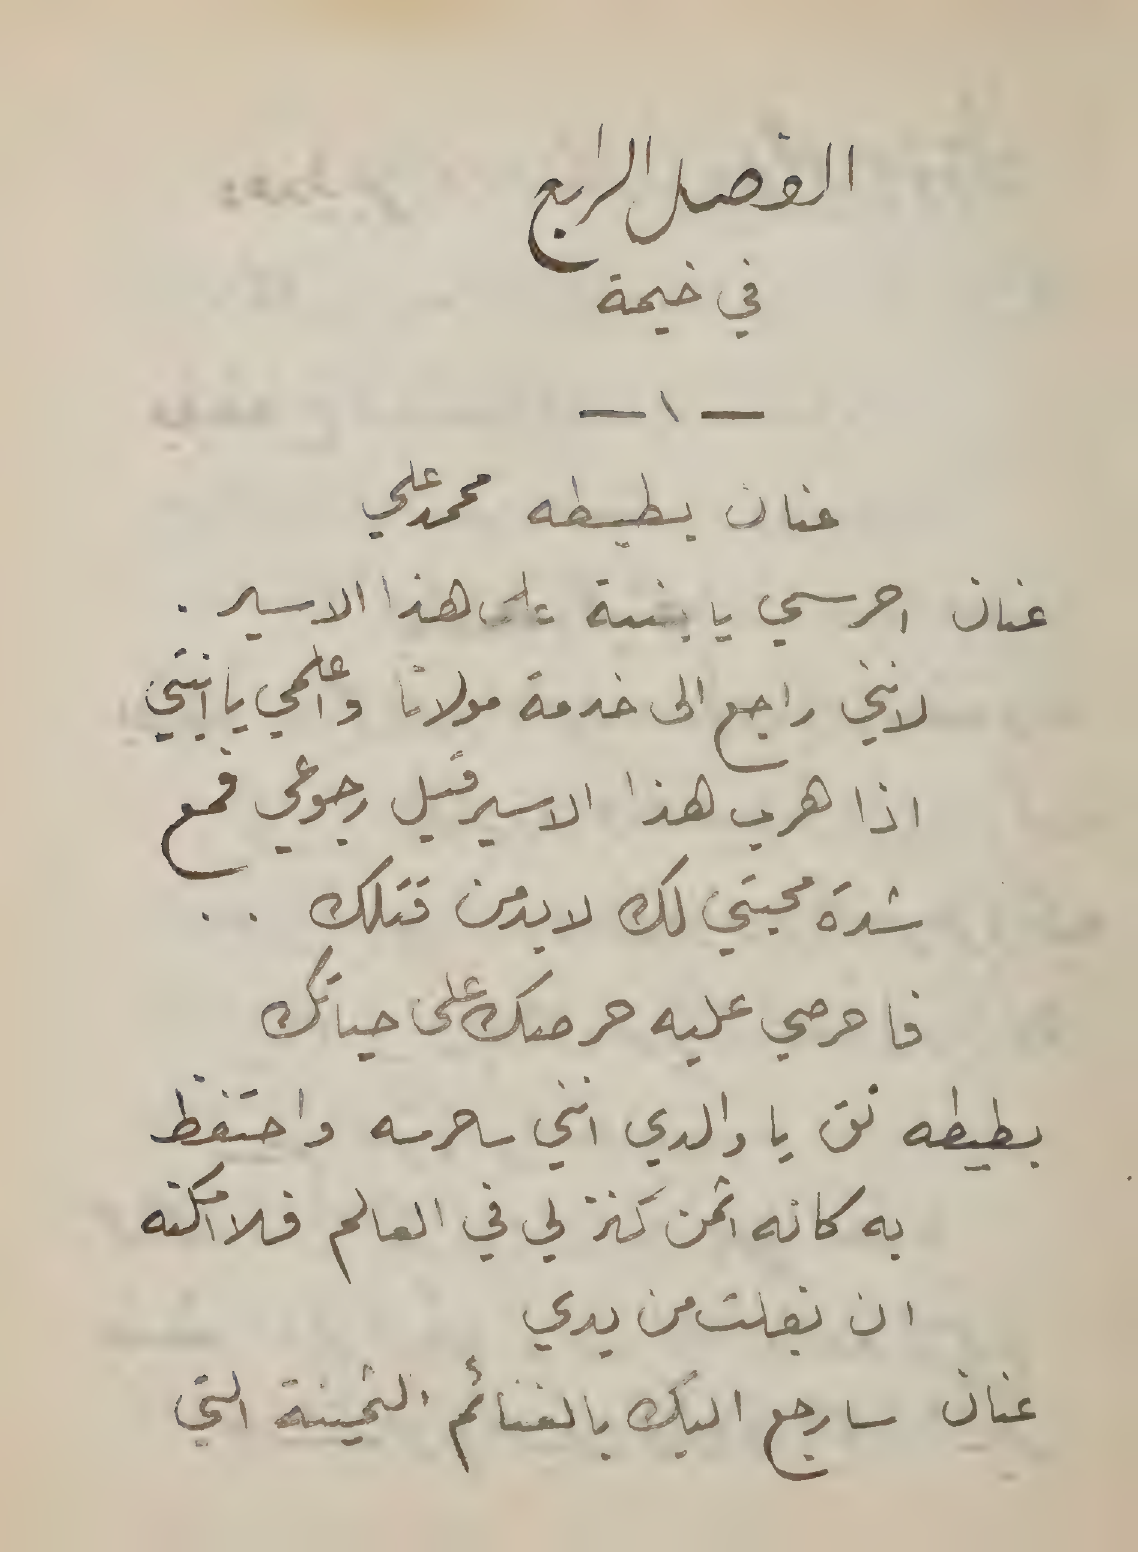 الفصل الرابع
في خيمة
— ١ —
عنان بطيطه محمد علي
عنان احرسي يا بنية على هذا الاسير .
لانني راجع الى خدمة مولانا واعلمي يا ابنتي
اذا هرب هذا الاسير قبل رجوعي فمع
شدة محبتي لك لا بد من قتلك . .
فاحرصي عليه حرصك على حياتك
بطيطه ثق يا والدي انني ساحرسه واحتفظ
به كانه اثمن كنز لي في العالم فلا امكنه
ان يفلت من يدي
عنان سارجع اليك بالغنائم الثمينة التي